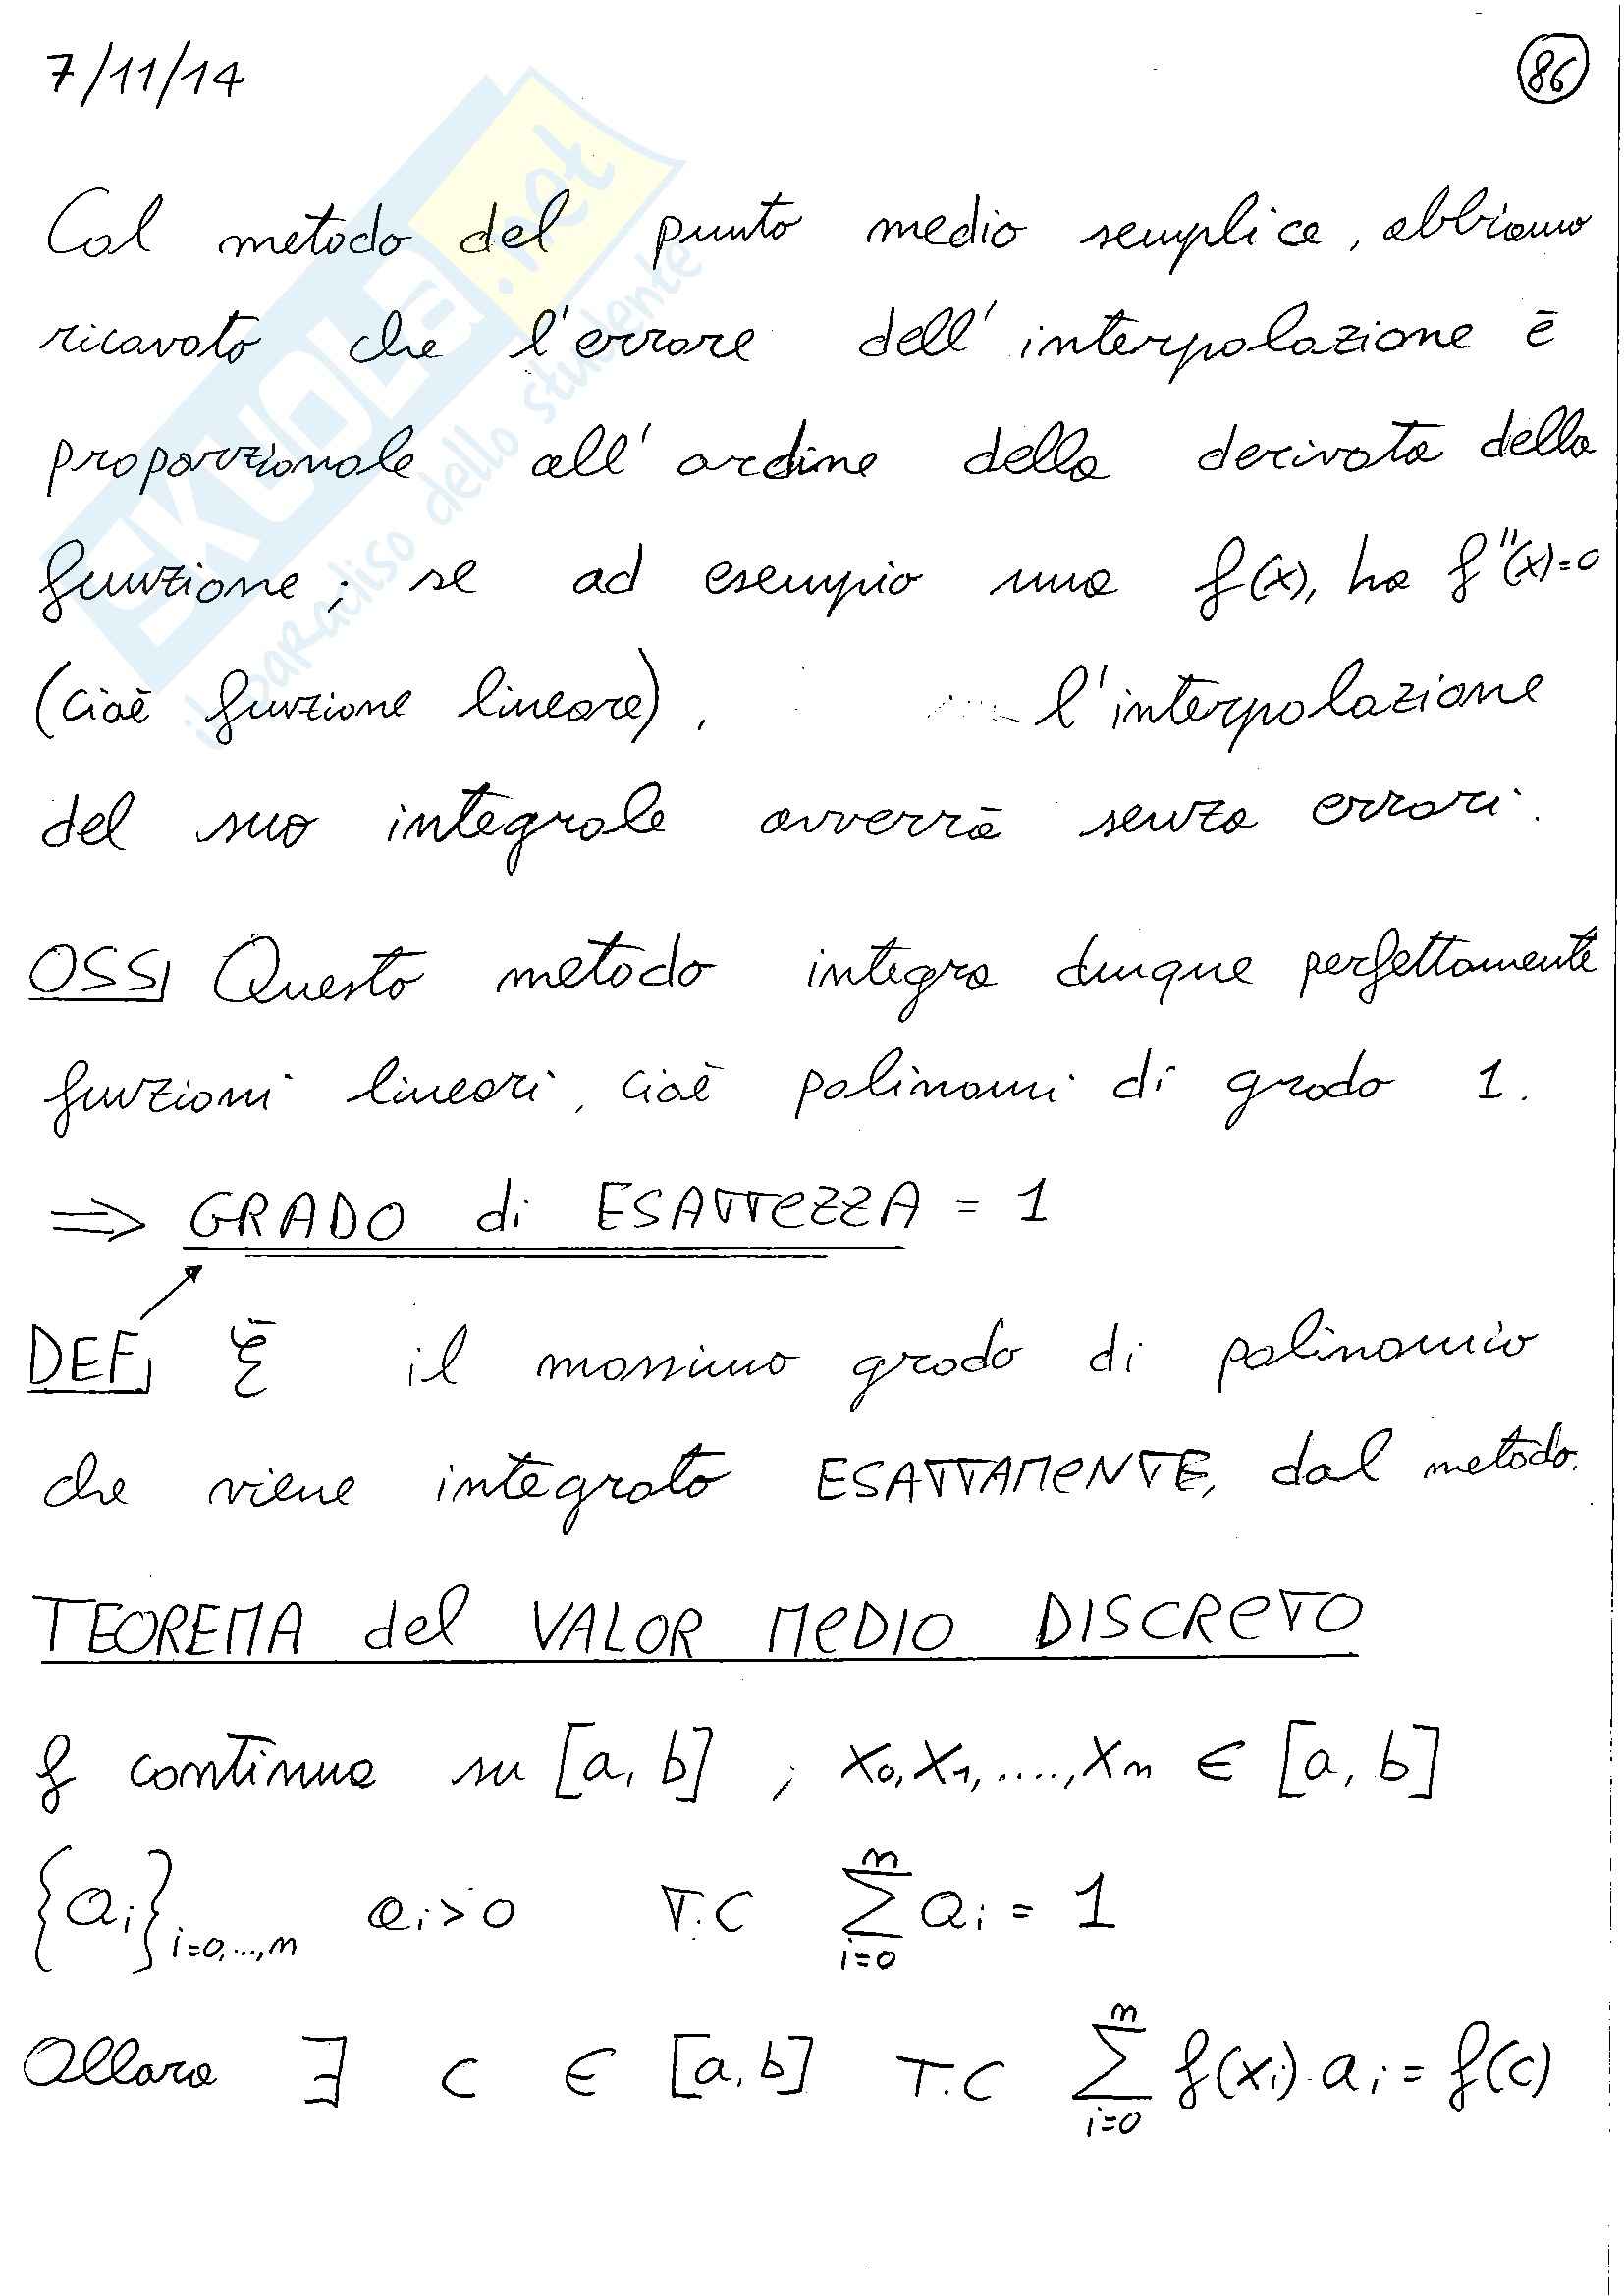 7/11/14
86
Col metodo del punto medio semplice, abbiamo
ricavato che l'errore dell'interpolazione è
proporzionale all'ordine della derivata della
funzione; se ad esempio una f(x), ha f''(x)=0
(cioè funzione lineare), l'interpolazione
del suo integrale avverrà senza errori.
OSS) Questo metodo integra dunque perfettamente
funzioni lineari, cioè polinomi di grado 1.
⇒ GRADO di ESATTEZZA = 1
DEF) È il massimo grado di polinomio
che viene integrato ESATTAMENTE, dal metodo.
TEOREMA del VALOR MEDIO DISCRETO
f continua su [a, b] ; x₀, x₁, ...., xₙ ∈ [a, b]
{aᵢ}ᵢ₌₀,...,ₙ aᵢ > 0 T.C ∑ᵢ₌₀ⁿ aᵢ = 1
Allora ∃ c ∈ [a, b] T.C ∑ᵢ₌₀ⁿ f(xᵢ)·aᵢ = f(c)
SKUOLA.net
il paradiso dello studente